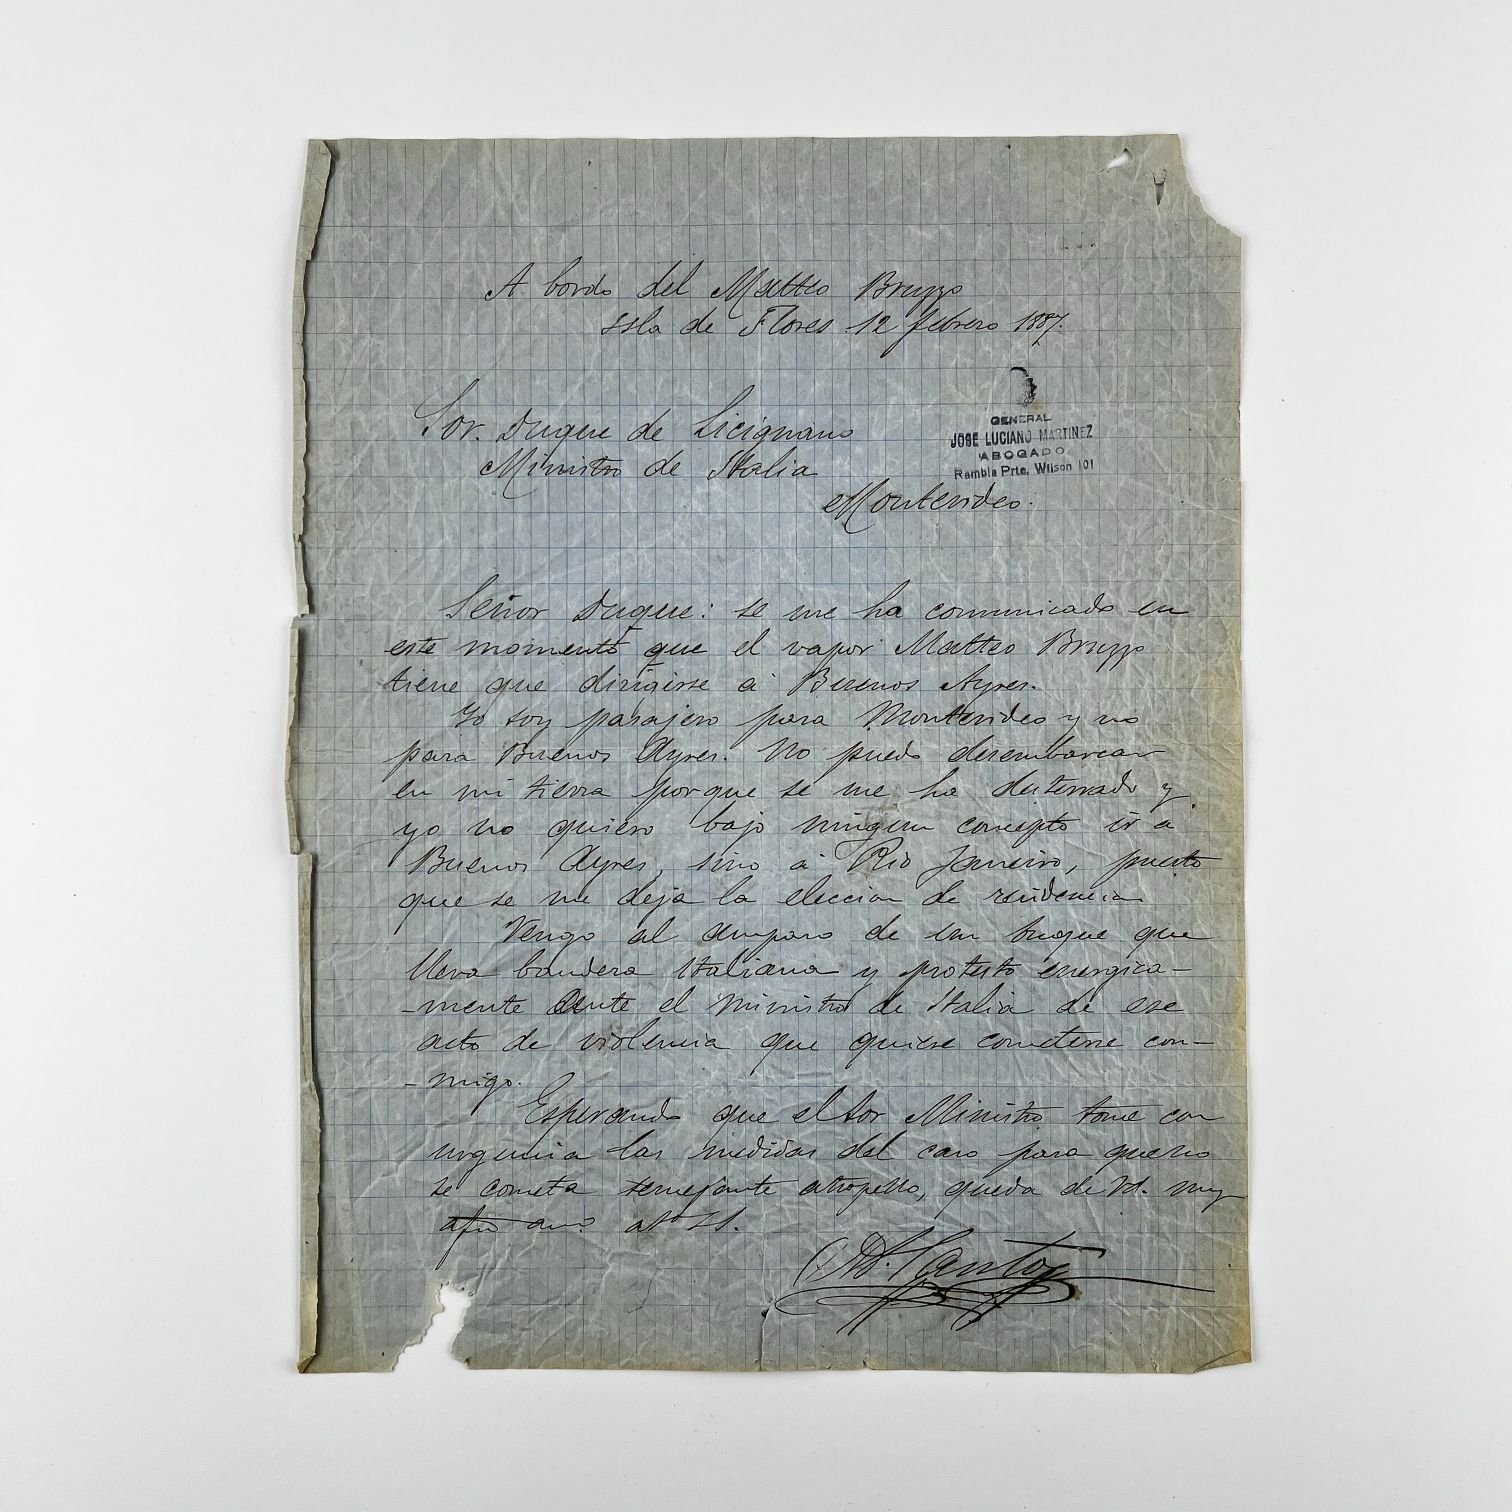 A bordo del Matteo Bruzzo
Isla de Flores 12 febrero 1887.
Sor. Duque de Licignano
Ministro de Italia
Montevideo.
GENERAL
JOSE LUCIANO MARTINEZ
ABOGADO
Rambla Prte. Wilson 101
Señor Duque: se me ha comunicado en
este momento que el vapor Matteo Bruzzo
tiene que dirigirse á Buenos Ayres.
Yo soy pasajero para Montevideo y no
para Buenos Ayres. No puedo desembarcar
en mi tierra porque se me ha desterrado y
yo no quiero bajo ningun concepto ir a
Buenos Ayres, sino a Rio Janeiro, puesto
que se me deja la eleccion de residencia
Vengo al amparo de un buque que
lleva bandera Italiana y protesto energica-
-mente ante el ministro de Italia de ese
acto de violencia que quiere cometerse con-
-migo.
Esperando que el Sor Ministro tome con
urgencia las medidas del caso para que no
se cometa semejante atropello, queda de Vd. muy
atto SS.
Santos